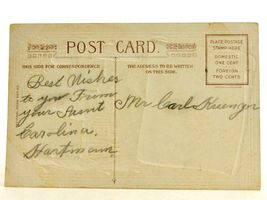 POST CARD.
PLACE POSTAGE
STAMP HERE
DOMESTIC
ONE CENT
FOREIGN
TWO CENTS
THIS SIDE FOR CORRESPONDENCE
THE ADDRESS TO BE WRITTEN
ON THIS SIDE.
Best Wishes
to you From
your Aunt
Carolina
Hartmann.
Mr Carl